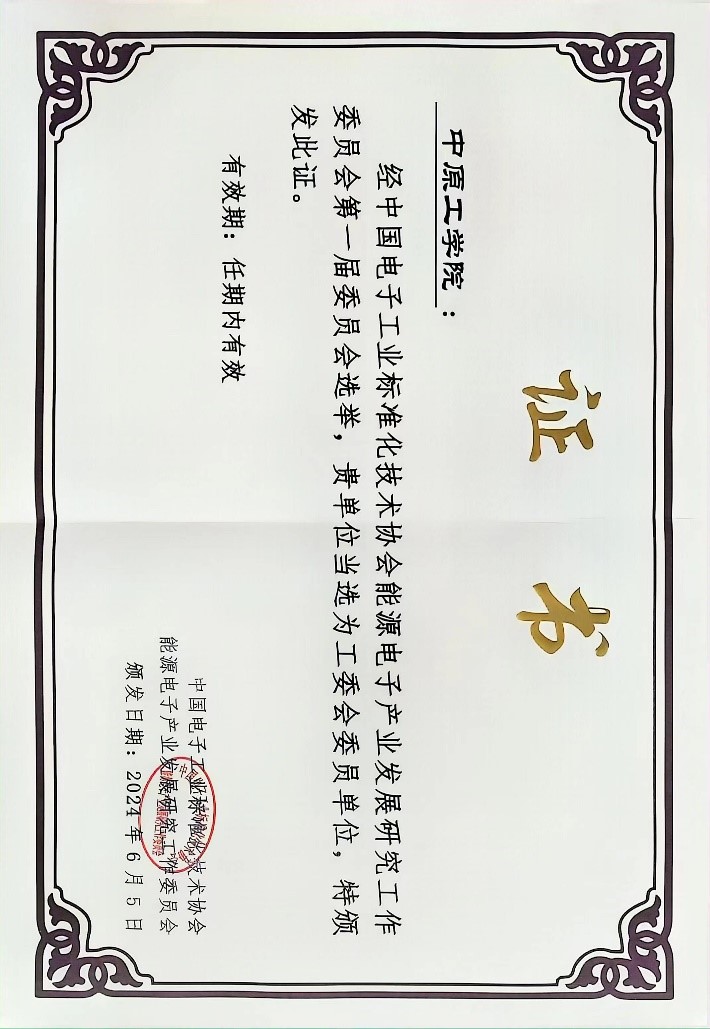 证 书
中原工学院：
经中国电子工业标准化技术协会能源电子产业发展研究工作
委员会第一届委员会选举，贵单位当选为工委会委员单位，特颁
发此证。
有效期：任期内有效
中国电子工业标准化技术协会
能源电子产业发展研究工作委员会
颁发日期：2024年6月5日